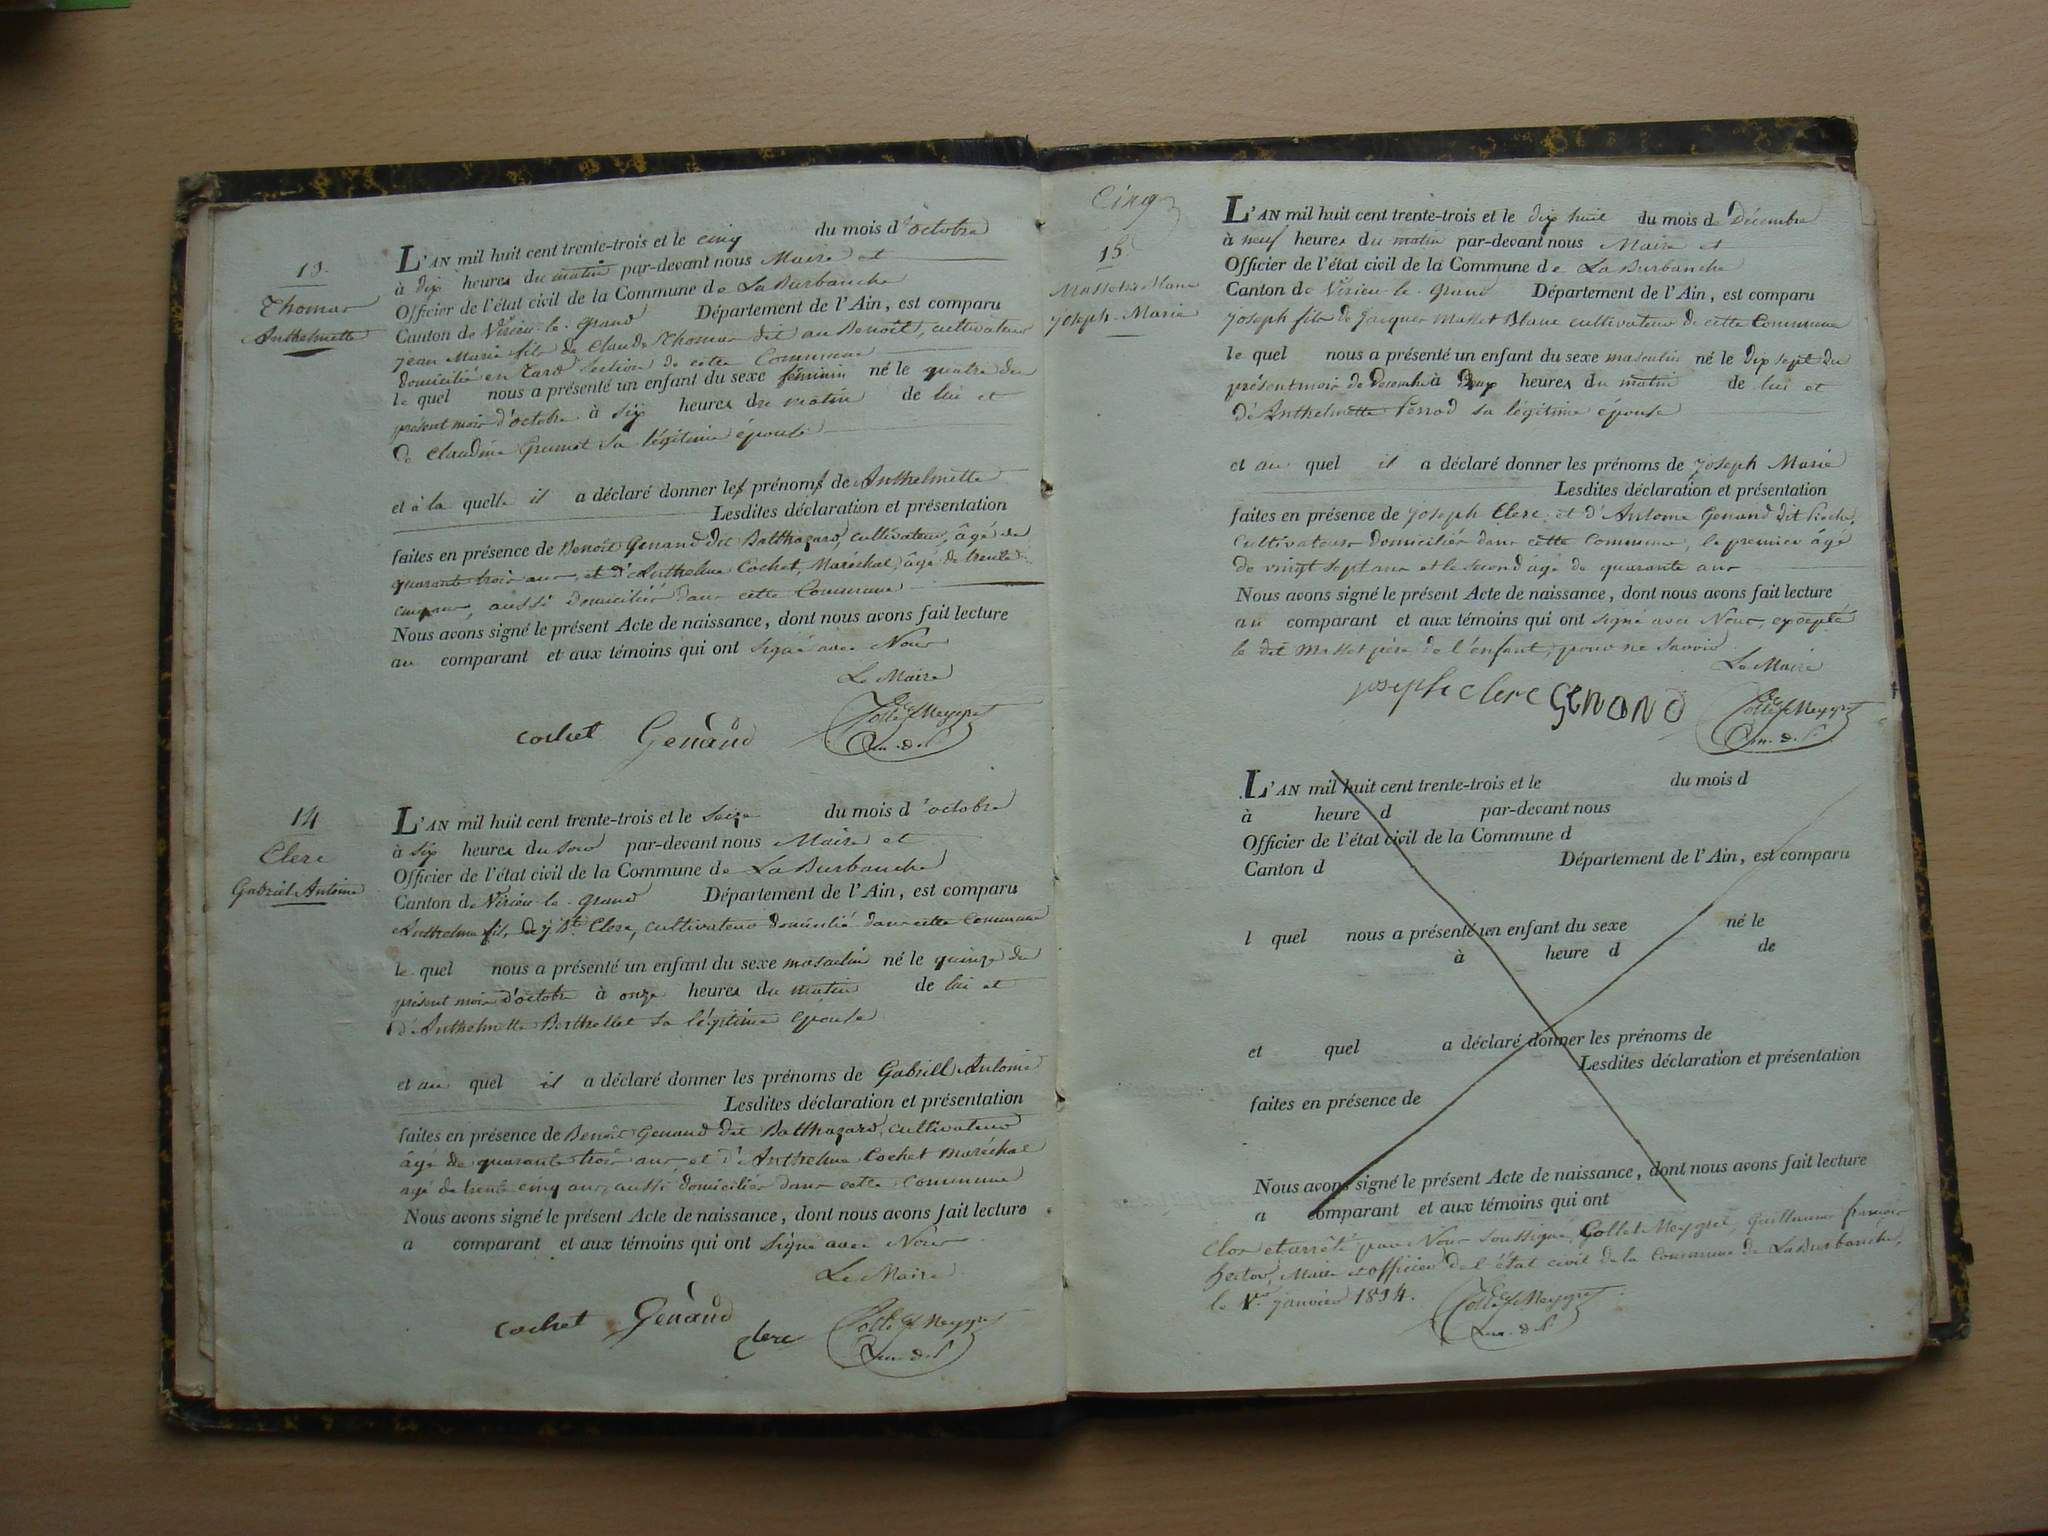 13.
Thomas
Anthelmette
L'AN mil huit cent trente-trois et le cinq du mois d'octobre
à dix heures du matin par-devant nous Maire et
Officier de l'état civil de la Commune de La Burbanche
Canton de Virieu-le-grand Département de l'Ain, est comparu
Jean Marie fils de Claude Thomas dit au Benoît, cultivateur
domicilié en Tard section de cette Commune
le quel nous a présenté un enfant du sexe féminin né le quatre du
présent mois d'octobre à six heures du matin de lui et
de Claudine Grumet sa légitime épouse
et à la quelle il a déclaré donner les prénoms de Anthelmette
Lesdites déclaration et présentation
faites en présence de Benoît Genand dit Balthazard, cultivateur, âgé de
quarante trois ans, et d'Anthelme Cochet, Maréchal, âgé de trente
cinq ans, aussi domiciliés dans cette Commune
Nous avons signé le présent Acte de naissance, dont nous avons fait lecture
au comparant et aux témoins qui ont signé avec Nous
Le Maire
cochet Genand
14
Clerc
Gabriel Antoine
L'AN mil huit cent trente-trois et le seize du mois d'octobre
à six heures du soir par-devant nous Maire et
Officier de l'état civil de la Commune de La Burbanche
Canton de Virieu-le-grand Département de l'Ain, est comparu
Anthelme fils de J Bte Clerc, cultivateur domicilié dans cette Commune
le quel nous a présenté un enfant du sexe masculin né le quinze du
présent mois d'octobre à onze heures du matin de lui et
d'Anthelmette Berthellet sa légitime épouse
et au quel il a déclaré donner les prénoms de Gabriel Antoine
Lesdites déclaration et présentation
faites en présence de Benoît Genand dit Balthazard, cultivateur
âgé de quarante trois ans, et d'Anthelme Cochet Maréchal
agé de trente cinq ans, aussi domiciliés dans cette Commune
Nous avons signé le présent Acte de naissance, dont nous avons fait lecture
a comparant et aux témoins qui ont signé avec Nous
Le Maire
cochet Genand clerc
Cinq
15.
Masset Blanc
Joseph-Marie
L'AN mil huit cent trente-trois et le dix huit du mois de Décembre
à neuf heures du matin par-devant nous Maire et
Officier de l'état civil de la Commune de La Burbanche
Canton de Virieu-le-grand Département de l'Ain, est comparu
Joseph fils de Jacques Masset Blanc cultivateur de cette Commune
le quel nous a présenté un enfant du sexe masculin né le dix sept du
présent mois de Decembre à deux heures du matin de lui et
d'Anthelmette Perrod sa légitime épouse
et au quel il a déclaré donner les prénoms de Joseph Marie
Lesdites déclaration et présentation
faites en présence de Joseph Clerc et d'Antoine Genand dit
cultivateurs domiciliés dans cette Commune, le premier âgé
de vingt sept ans et le second âgé de quarante ans
Nous avons signé le présent Acte de naissance, dont nous avons fait lecture
au comparant et aux témoins qui ont signé avec Nous, excepté
le dit Masset père de l'enfant, pour ne savoir
Le Maire
joseph clerc GENAND
L'AN mil huit cent trente-trois et le du mois d
à heure d par-devant nous
Officier de l'état civil de la Commune d
Canton d Département de l'Ain, est comparu
l quel nous a présenté un enfant du sexe né le
à heure d de
et quel a déclaré donner les prénoms de
Lesdites déclaration et présentation
faites en présence de
Nous avons signé le présent Acte de naissance, dont nous avons fait lecture
a comparant et aux témoins qui ont
Clos et arrêté par Nous soussigné, Gollet Meygret, Guillaume françois
hector, Maire et officier de l'état civil de la Commune de La Burbanche,
le 1er janvier 1834.